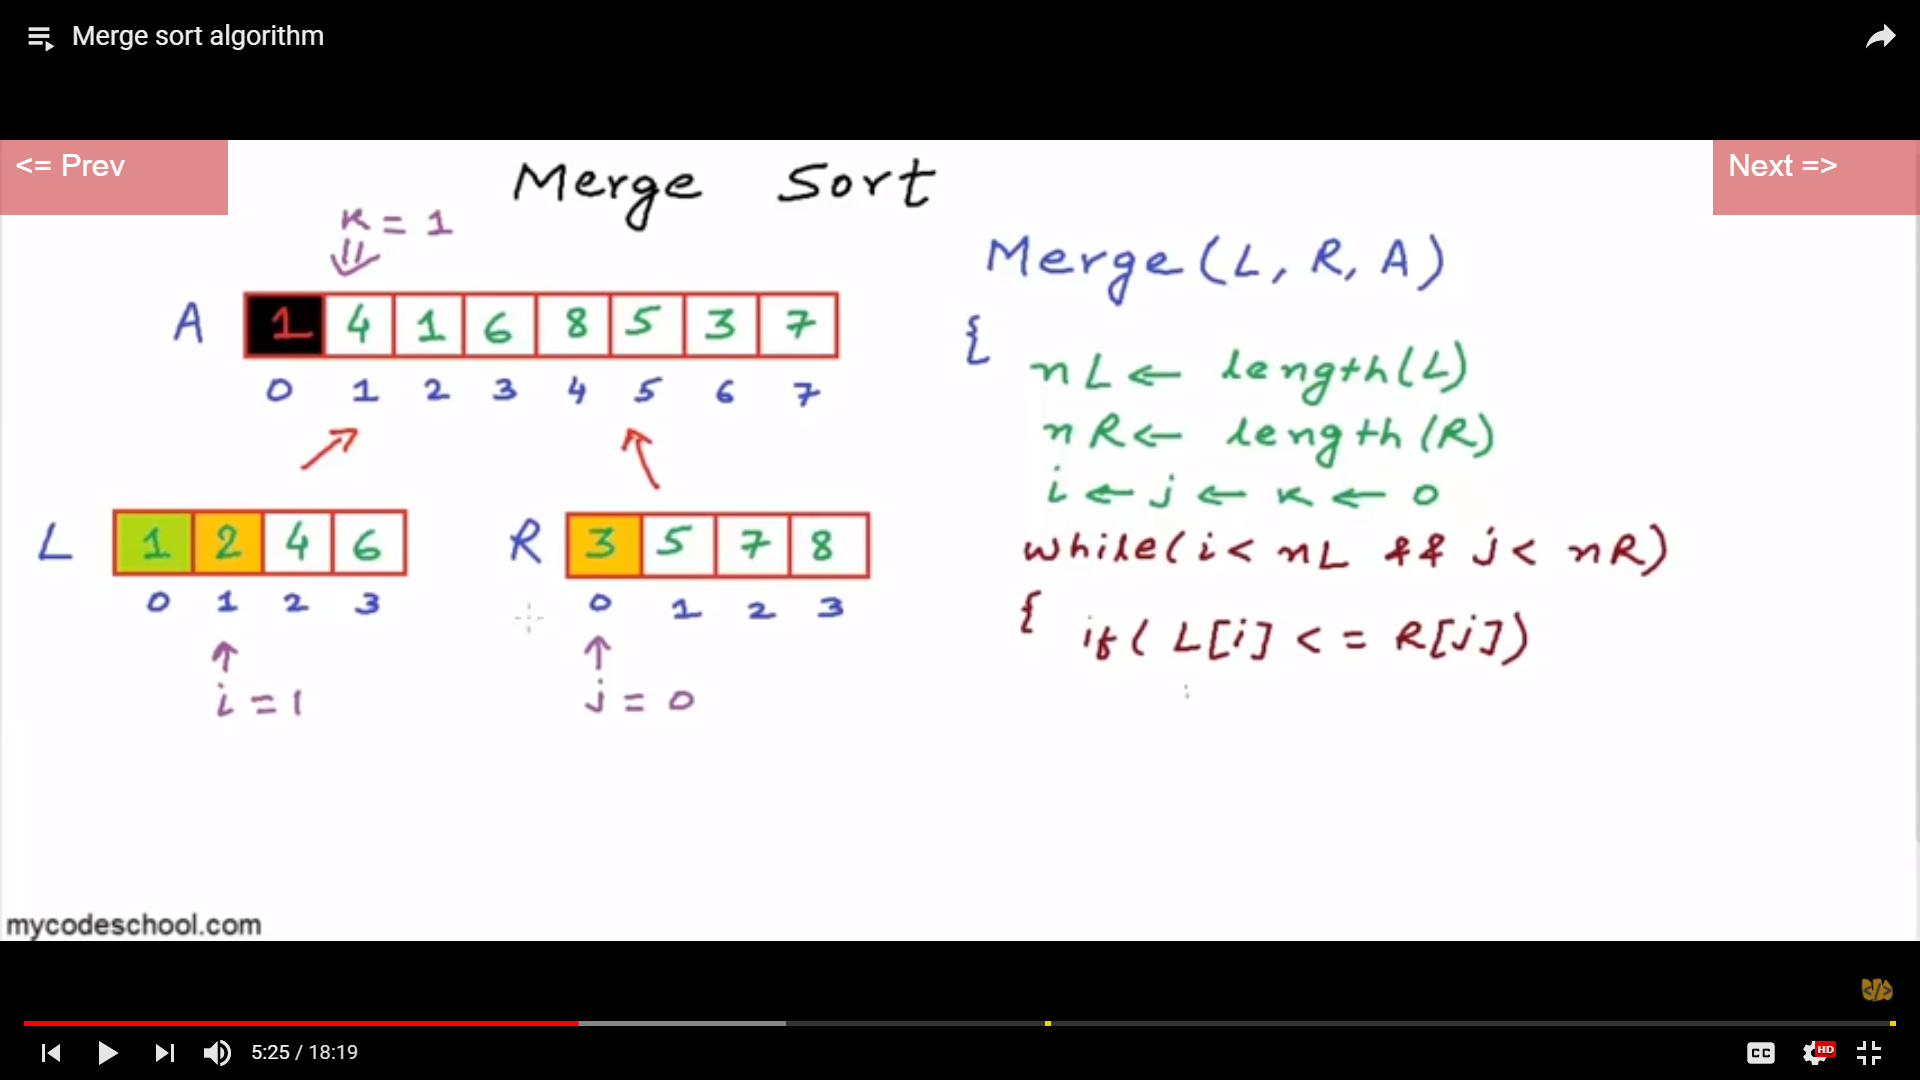 Merge sort algorithm
<= Prev
Next =>
Merge Sort
K = 1
A 1 4 1 6 8 5 3 7
0 1 2 3 4 5 6 7
L 1 2 4 6
0 1 2 3
i = 1
R 3 5 7 8
0 1 2 3
j = 0
Merge(L, R, A)
{
nL ← length(L)
nR ← length(R)
i ← j ← K ← 0
while(i < nL && j < nR)
{ if( L[i] <= R[j])
mycodeschool.com
</>
5:25 / 18:19
CC
HD